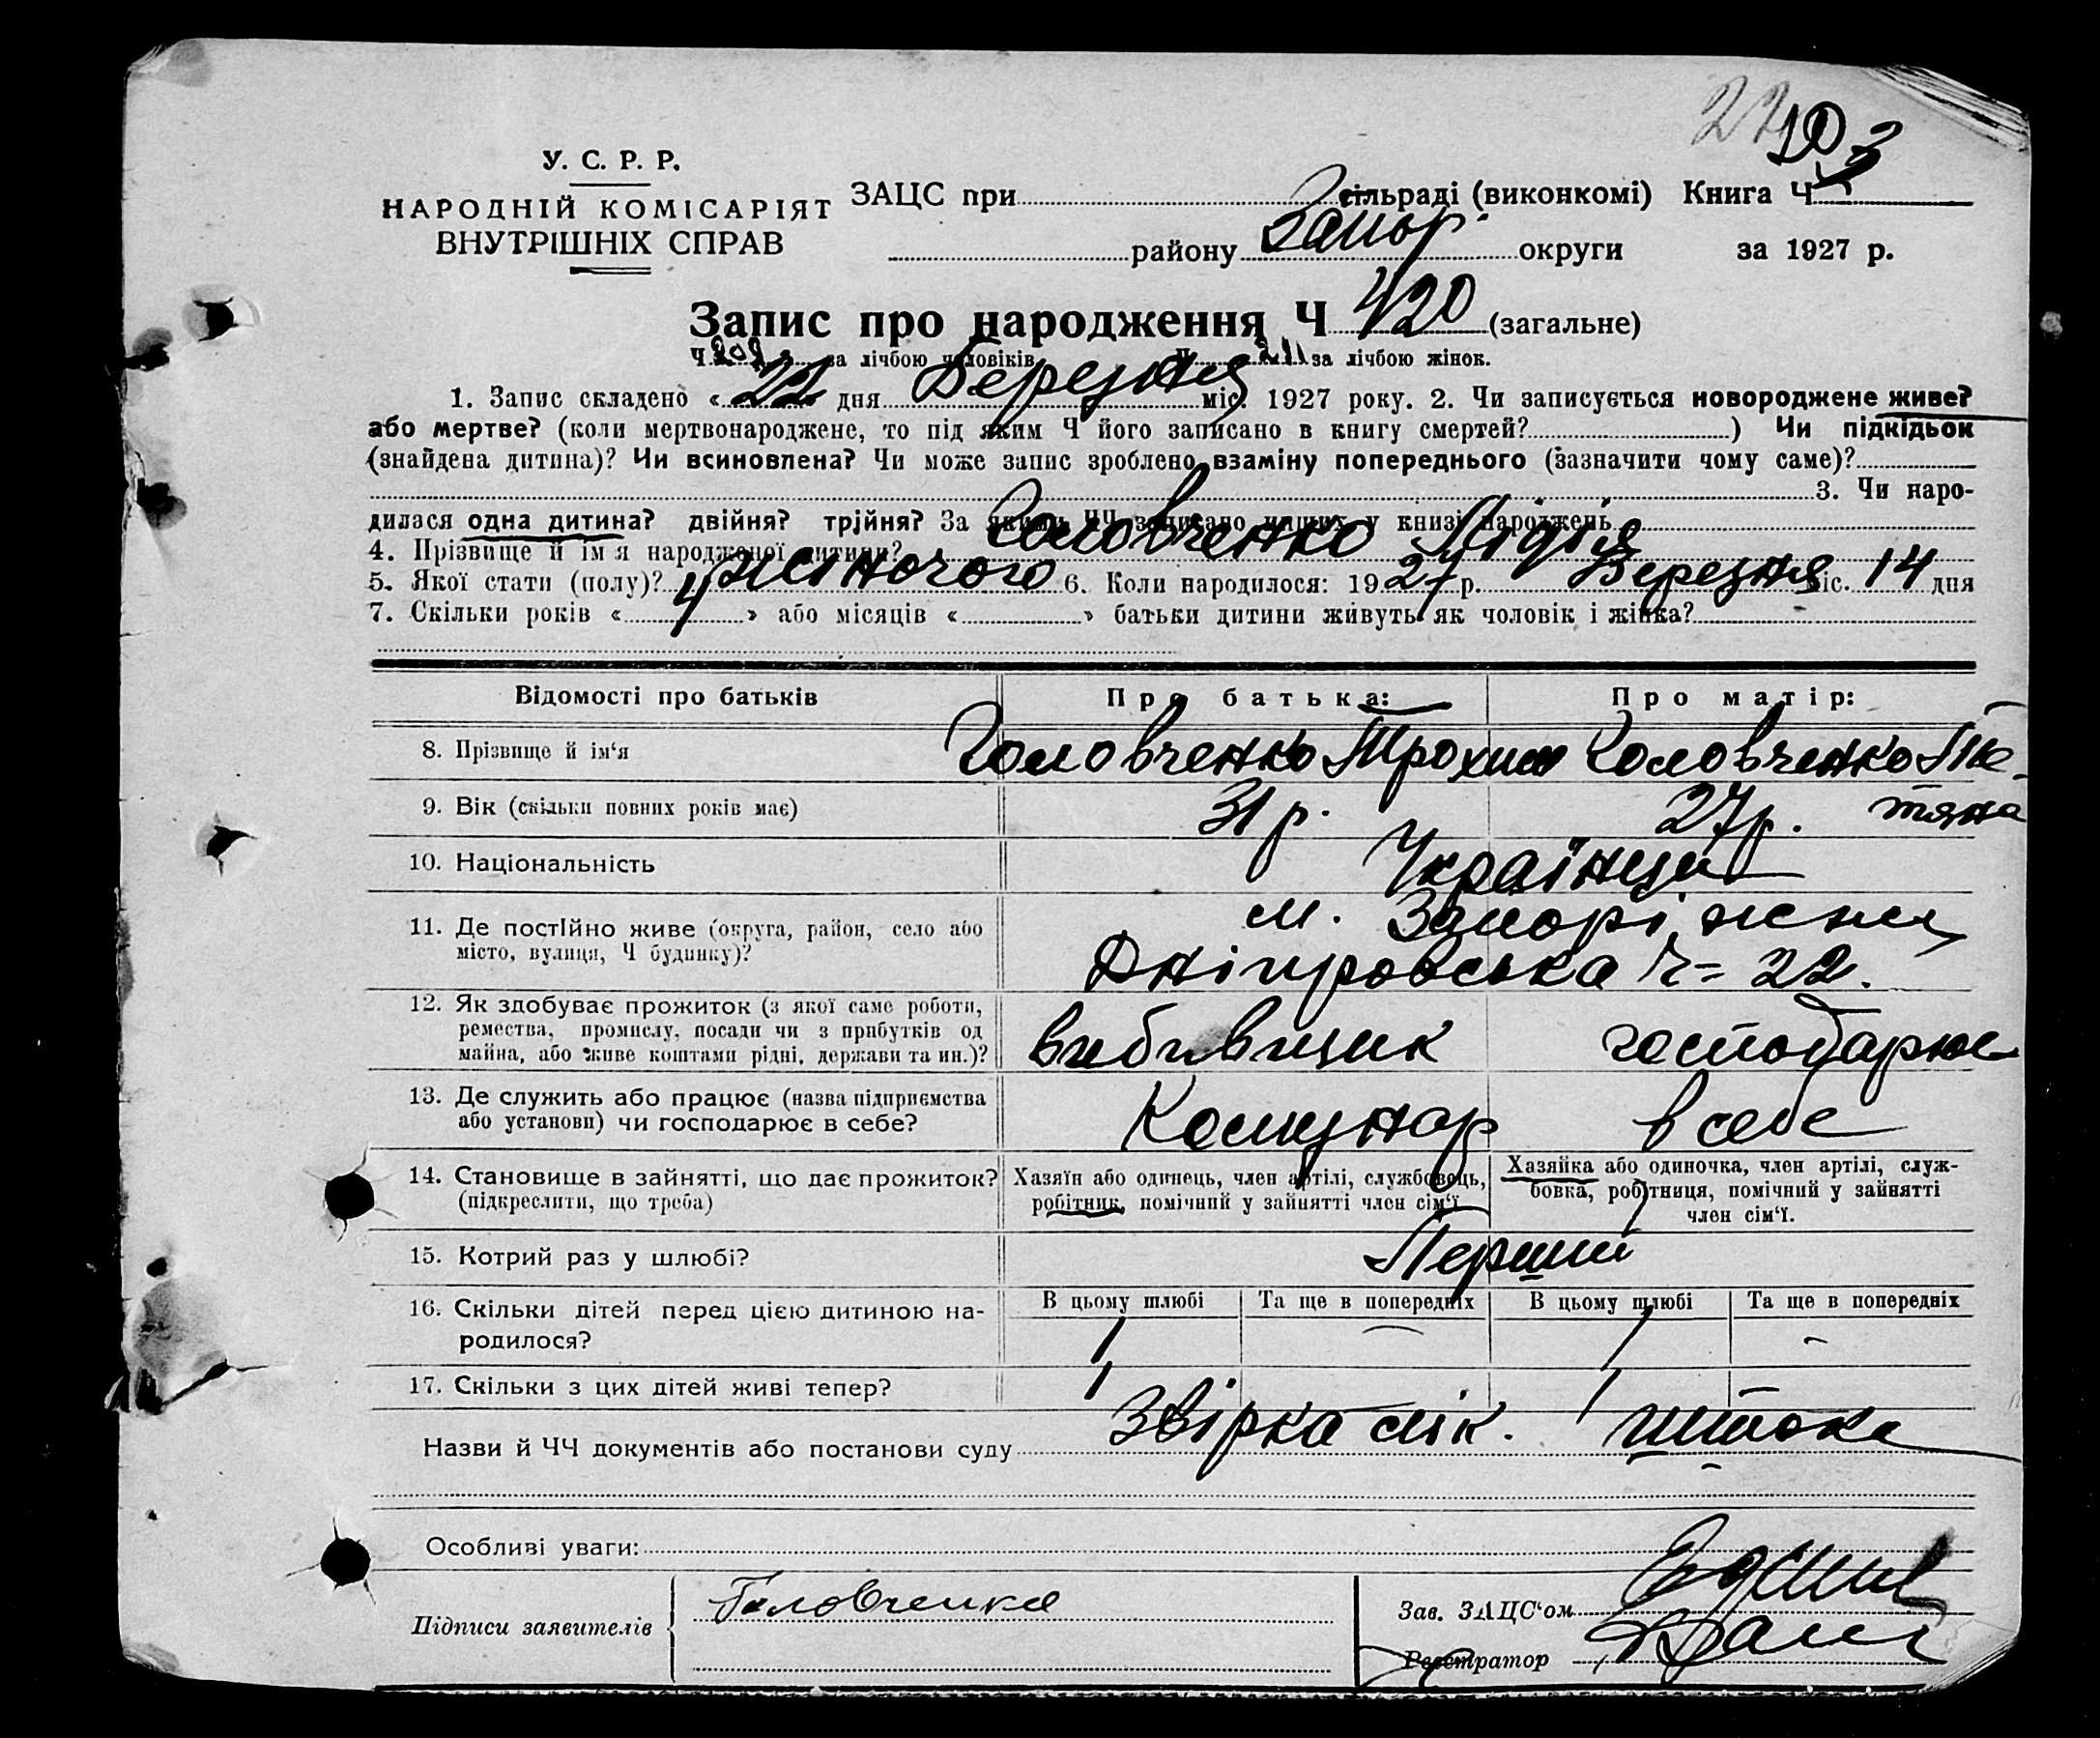 22 103
У. С. Р. Р.
НАРОДНІЙ КОМІСАРІЯТ
ВНУТРІШНІХ СПРАВ
ЗАЦС при сільраді (виконкомі) Книга Ч
району Запор. округи за 1927 р.
Запис про народження Ч 420 (загальне)
Ч 209 за лічбою чоловіків Ч 211 за лічбою жінок.
1. Запис складено « 22 » дня Березня міс. 1927 року. 2. Чи записується новороджене живе?
або мертве? (коли мертвонароджене, то під яким Ч його записано в книгу смертей? ) Чи підкідьок
(знайдена дитина)? Чи всиновлена? Чи може запис зроблено взаміну попереднього (зазначити чому саме)?
3. Чи наро-
дилася одна дитина? двійня? трійня? За якими ЧЧ записано инших у книзі народжень
4. Прізвище й ім'я народженої дитини? Головченко Лідія
5. Якої стати (полу)? жіночого 6. Коли народилося: 1927 р. Березня міс. 14 дня
7. Скільки років « 4 » або місяців « » батьки дитини живуть як чоловік і жінка?
Відомості про батьків Про батька: Про матір:
8. Прізвище й ім'я Головченко Трохим Головченко Те-
тяна
9. Вік (скільки повних років має) 31 р. 27 р.
10. Національність Українці
11. Де постійно живе (округа, район, село або
місто, вулиця, Ч будинку)?
м. Запоріжжя
Дніпровська Ч= 22.
12. Як здобуває прожиток (з якої саме роботи,
ремества, промислу, посади чи з прибутків од
майна, або живе коштами рідні, держави та ин.)?
вибивщик господарює
13. Де служить або працює (назва підприємства
або установи) чи господарює в себе?
Комунар в себе
14. Становище в зайнятті, що дає прожиток?
(підкреслити, що треба)
Хазяїн або одинець, член артілі, службовець,
робітник, помічний у зайнятті член сім'ї
Хазяйка або одиночка, член артілі, служ-
бовка, робітниця, помічний у зайнятті
член сім'ї.
15. Котрий раз у шлюбі? Перший
16. Скільки дітей перед цією дитиною на-
родилося?
В цьому шлюбі Та ще в попередніх В цьому шлюбі Та ще в попередніх
1 – 1 –
17. Скільки з цих дітей живі тепер? 1 1
Назви й ЧЧ документів або постанови суду Звірка лік.
Особливі уваги:
Підписи заявителів Головченко
Зав. ЗАЦС'ом
Реєстратор